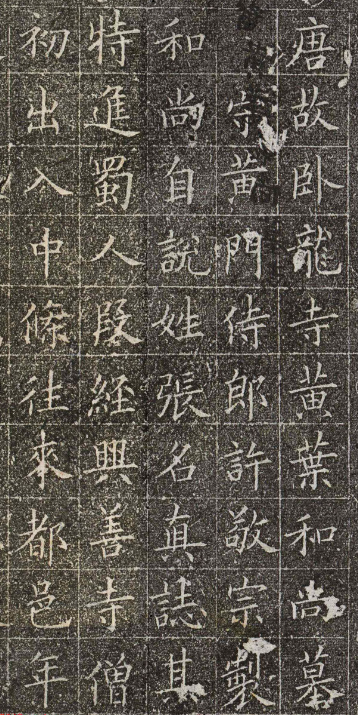 唐故卧龍寺黄葉和尚墓
宗黄門侍郎許敬宗製
和尚自說姓張名真誌其
特進蜀人段經興善寺僧
初出入中條往來都邑年